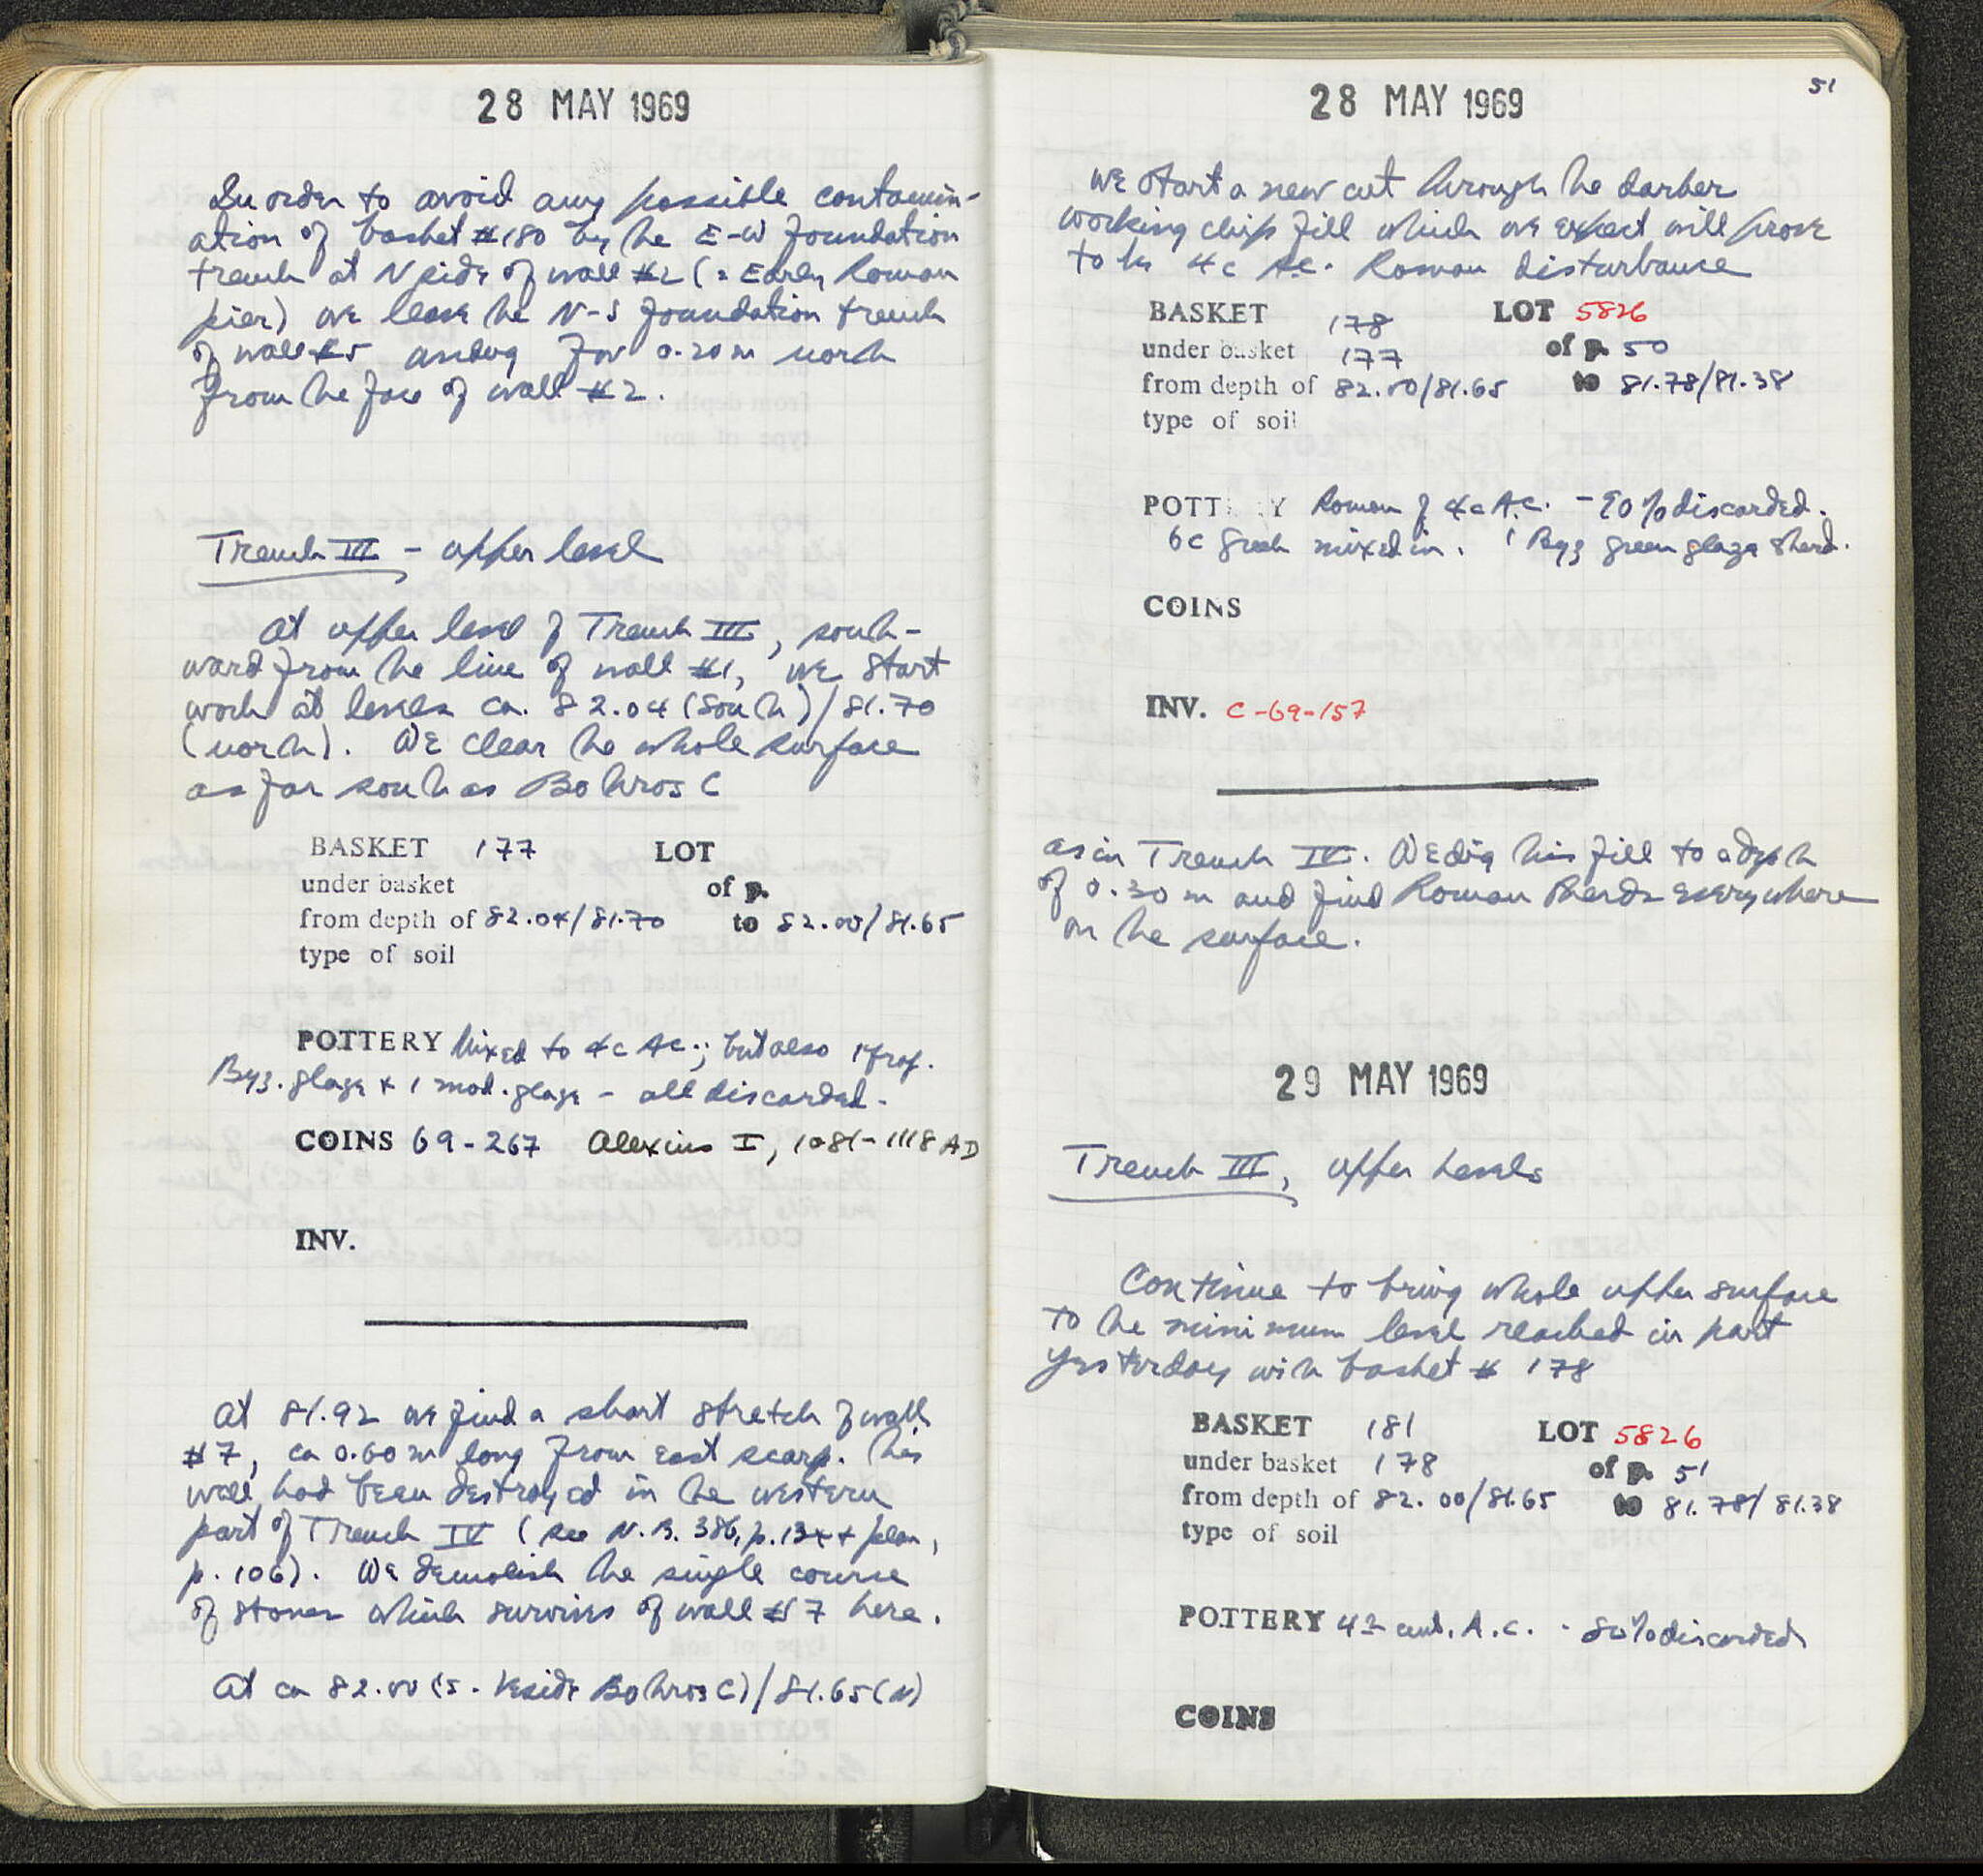 28 MAY 1969
In order to avoid any possible contamin-
ation of basket #180 by the E-W foundation
trench at N side of wall #2 (= Early Roman
pier) we leave the N-S foundation trench
of wall #5 undug for 0.20 m north
from the face of wall #2.
Trench III - upper level
At upper level of Trench III, south-
ward from the line of wall #1, we start
work at levels ca. 82.04 (south) / 81.70
(north). We clear the whole surface
as far south as Bothros C
BASKET 177 LOT
under basket of p.
from depth of 82.04/81.70 to 82.00/81.65
type of soil
POTTERY Mixed to 4c AC.; but also 1 frag.
Byz. glaze + 1 mod. glaze - all discarded.
COINS 69-267 Alexius I, 1081-1118 AD
INV.
At 81.92 we find a short stretch of wall
#7, ca 0.60 m long from east scarp. This
wall had been destroyed in the western
part of Trench IV (see N.B. 386, p. 134 + plan,
p. 106). We demolish the single course
of stones which survives of wall #7 here.
At ca 82.00 (S. beside Bothros C) / 81.65 (N)
51
28 MAY 1969
we start a new cut through the darker
working chip fill which we expect will prove
to be 4c A.C. Roman disturbance
BASKET 178 LOT 5826
under basket 177 of p. 50
from depth of 82.00/81.65 to 81.78/81.38
type of soil
POTTERY Roman of 4c A.C. - 90% discarded.
6c Greek mixed in. 1 Byz green glaze sherd.
COINS
INV. C-69-157
as in Trench IV. We dig this fill to a depth
of 0.30 m and find Roman sherds everywhere
on the surface.
29 MAY 1969
Trench III, upper levels
Continue to bring whole upper surface
to the minimum level reached in part
yesterday with basket # 178
BASKET 181 LOT 5826
under basket 178 of p. 51
from depth of 82.00/81.65 to 81.78/81.38
type of soil
POTTERY 4th cent. A.C. - 80% discarded
COINS